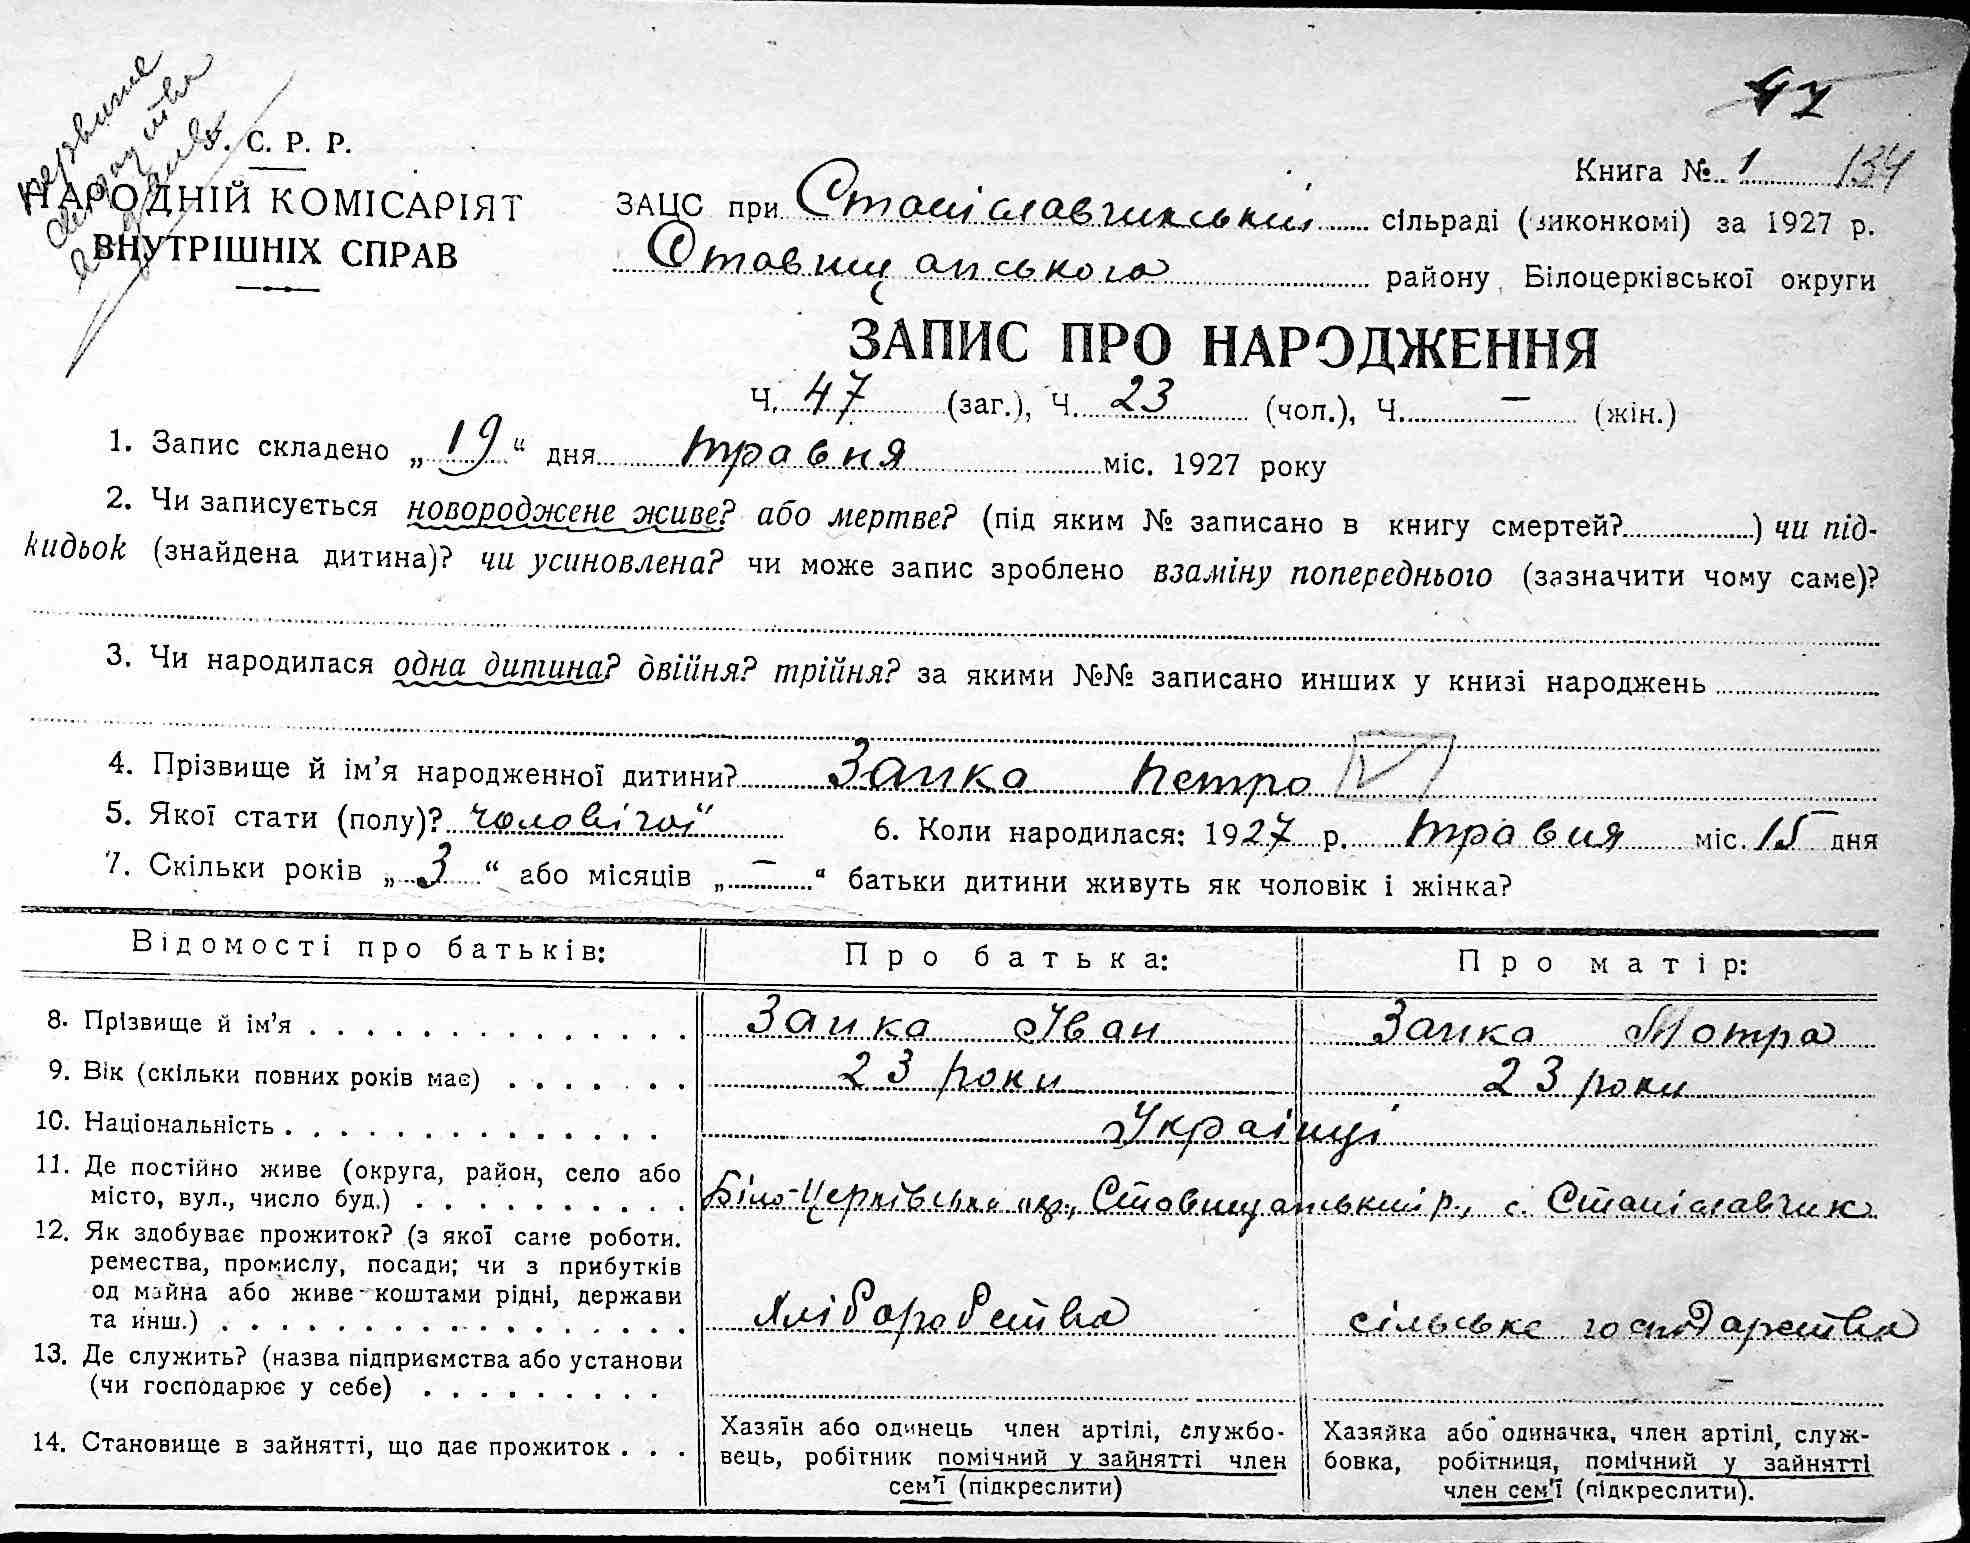 первинне
47
С. Р. Р.
Книга № 1 134
НАРОДНІЙ КОМІСАРІЯТ
ВНУТРІШНІХ СПРАВ
ЗАЦС при Станіславчикській сільраді (виконкомі) за 1927 р.
Ставищанського району, Білоцерківської округи
ЗАПИС ПРО НАРОДЖЕННЯ
Ч. 47 (заг.), Ч. 23 (чол.), Ч. — (жін.)
1. Запис складено „19“ дня травня міс. 1927 року
2. Чи записується новороджене живе? або мертве? (під яким № записано в книгу смертей?..........) чи під-
кидьок (знайдена дитина)? чи усиновлена? чи може запис зроблено взаміну попереднього (зазначити чому саме)?
3. Чи народилася одна дитина? двійня? трійня? за якими №№ записано инших у книзі народжень
4. Прізвище й ім’я народженної дитини? Заика Петро
5. Якої стати (полу)? чоловічої 6. Коли народилася: 1927 р. травня міс. 15 дня
7. Скільки років „3“ або місяців „—“ батьки дитини живуть як чоловік і жінка?
Відомості про батьків: Про батька: Про матір:
8. Прізвище й ім’я . . . Заика Іван Заика Мотра
9. Вік (скільки повних років має) . . . 23 роки 23 роки
10. Національність . . . Українці
11. Де постійно живе (округа, район, село або
місто, вул., число буд.) . . . Біло-Церківська окр., Ставищанський р., с. Станіславчик
12. Як здобуває прожиток? (з якої саме роботи.
ремества, промислу, посади; чи з прибутків
од майна або живе коштами рідні, держави
та инш.) . . . Хліборобства сільське господарства
13. Де служить? (назва підприємства або установи
(чи господарює у себе) . . . –
14. Становище в зайнятті, що дає прожиток . . .
Хазяїн або одинець член артілі, службо-
вець, робітник помічний у зайнятті член
сем’ї (підкреслити)
Хазяйка або одиначка, член артілі, служ-
бовка, робітниця, помічний у зайнятті
член сем’ї (підкреслити).